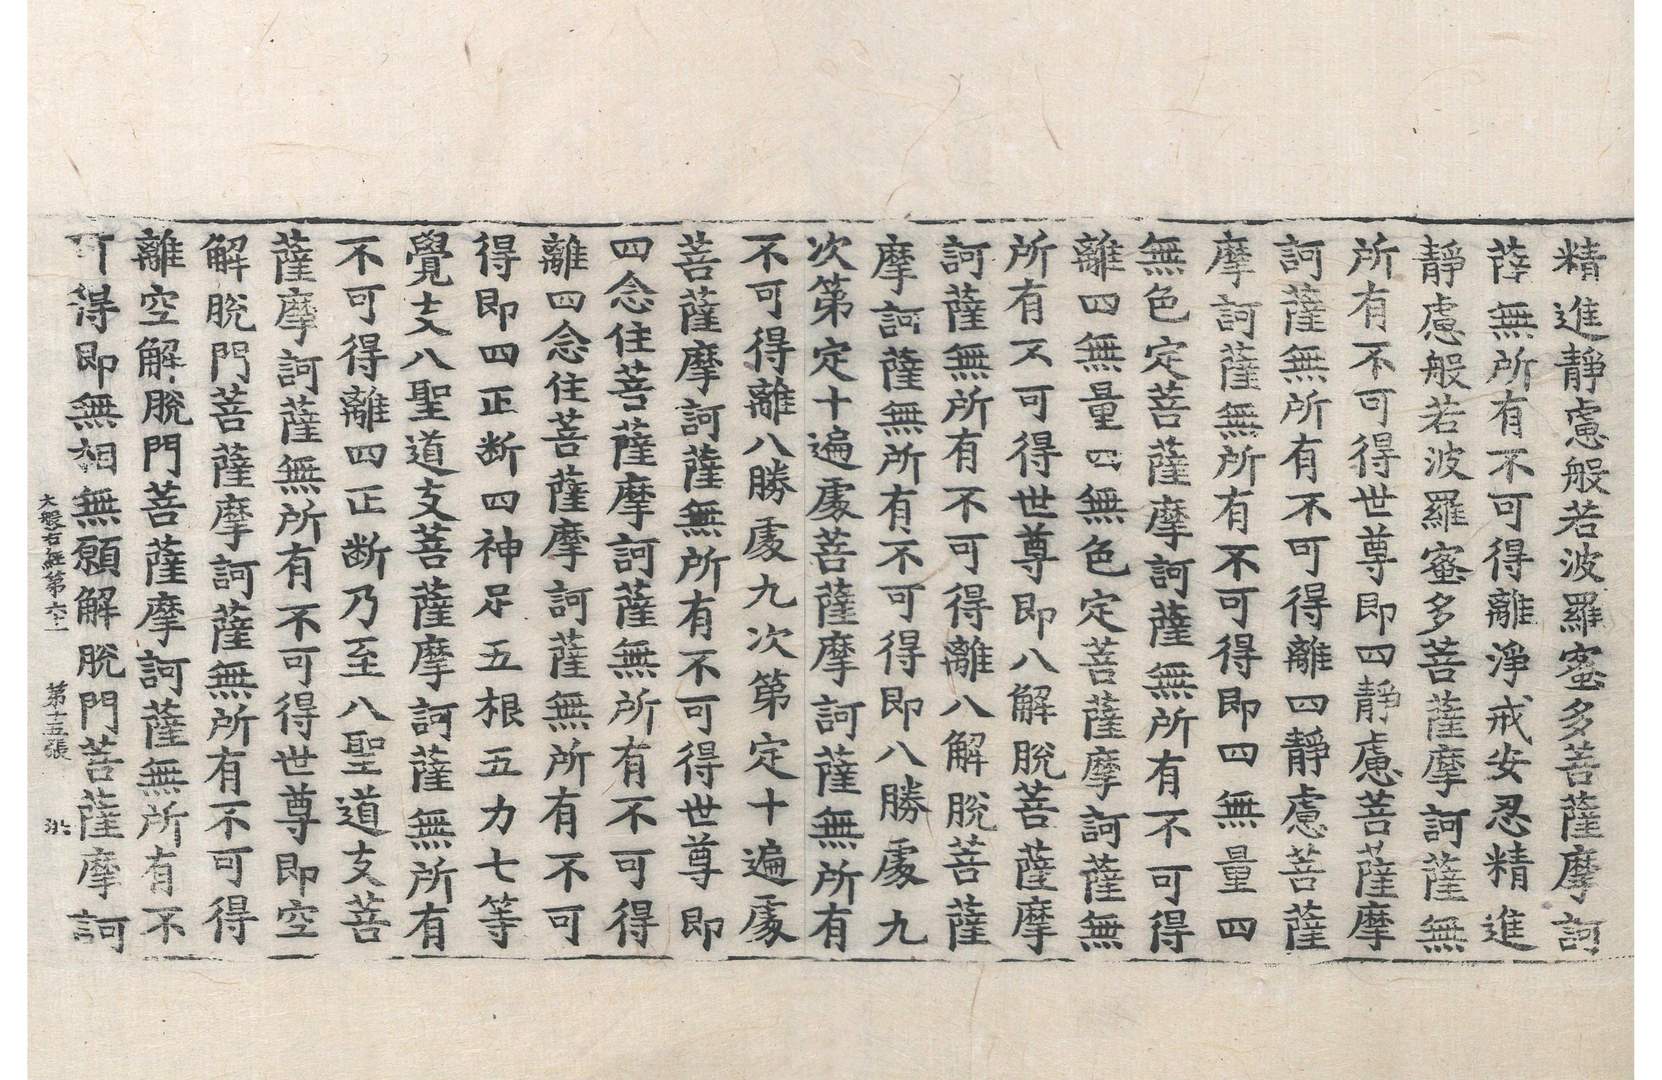 精進靜慮般若波羅蜜多菩薩摩訶
薩無所有不可得離淨戒安忍精進
靜慮般若波羅蜜多菩薩摩訶薩無
所有不可得世尊即四靜慮菩薩摩
訶薩無所有不可得離四靜慮菩薩
摩訶薩無所有不可得即四無量四
無色定菩薩摩訶薩無所有不可得
離四無量四無色定菩薩摩訶薩無
所有不可得世尊即八解脫菩薩摩
訶薩無所有不可得離八解脫菩薩
摩訶薩無所有不可得即八勝處九
次第定十遍處菩薩摩訶薩無所有
不可得離八勝處九次第定十遍處
菩薩摩訶薩無所有不可得世尊即
四念住菩薩摩訶薩無所有不可得
離四念住菩薩摩訶薩無所有不可
得即四正断四神足五根五力七等
覺支八聖道支菩薩摩訶薩無所有
不可得離四正断乃至八聖道支菩
薩摩訶薩無所有不可得世尊即空
解脫門菩薩摩訶薩無所有不可得
離空解脫門菩薩摩訶薩無所有不
可得即無相無願解脫門菩薩摩訶
大般若經第六十一 第十五張 洪